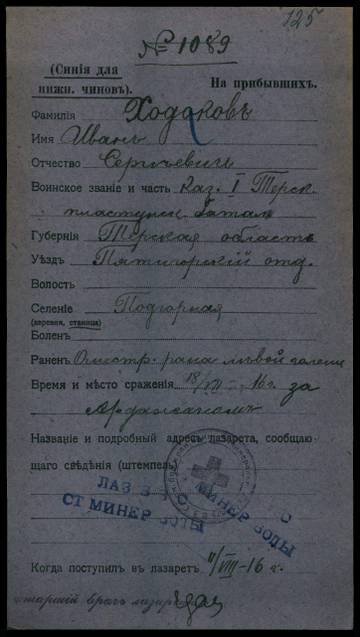 125
№ 1089
(Синія для
нижн. чиновъ).
На прибывшихъ.
Фамилія Ходаковъ
Имя Иванъ
Отчество Сергѣевичъ
Воинское званіе и часть Каз. I Терск.
пластунск. батал.
Губернія Терская область
Уѣздъ Пятигорскій отд.
Волость
Селеніе Подгорная
(деревня, станица)
Боленъ
Раненъ Огнестр. рана лѣвой голени
Время и мѣсто сраженія 18/VII-16 г. за
Названіе и подробный адресъ лазарета, сообщаю-
щаго свѣдѣнія (штемпель)
ЛАЗ
СТ МИНЕР ВОДЫ
МИНЕР ВОДЫ
Когда поступилъ въ лазаретъ 11/VIII-16 г.
старшій врачъ лазарета